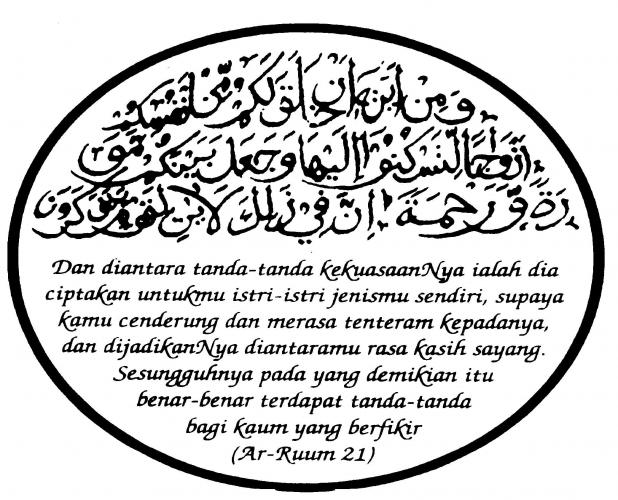 وَمِنْ ايٰتِهٖ اَنْ خَلَقَ لَكُمْ مِّنْ اَنْفُسِكُمْ
اَزْوَاجًا لِّتَسْكُنُوْا اِلَيْهَا وَجَعَلَ بَيْنَكُمْ مَّوَ
دَّةً وَّرَحْمَةً اِنَّ فِيْ ذٰلِكَ لَاٰيٰتٍ لِّقَوْمٍ يَّتَفَكَّرُوْنَ
Dan diantara tanda-tanda kekuasaanNya ialah dia
ciptakan untukmu istri-istri jenismu sendiri, supaya
kamu cenderung dan merasa tenteram kepadanya,
dan dijadikanNya diantaramu rasa kasih sayang.
Sesungguhnya pada yang demikian itu
benar-benar terdapat tanda-tanda
bagi kaum yang berfikir
(Ar-Ruum 21)